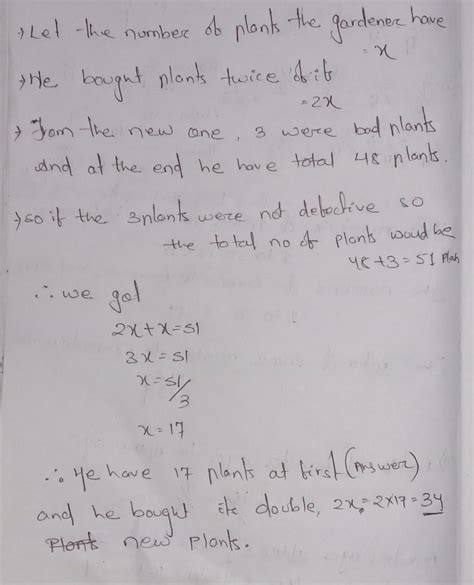 → Let the number of plants the gardener have
= x
→ He bought plants twice of its
= 2x
→ From the new one, 3 were bad plants
and at the end he have total 48 plants.
→ so if the 3 plants were not defective so
the total no of plants would be
48 + 3 = 51 Plan
∴ we got
2x + x = 51
3x = 51
x = 51/3
x = 17
∴ He have 17 plants at first (Answer)
and he bought its double, 2x = 2×17 = 34
Plants new plants.